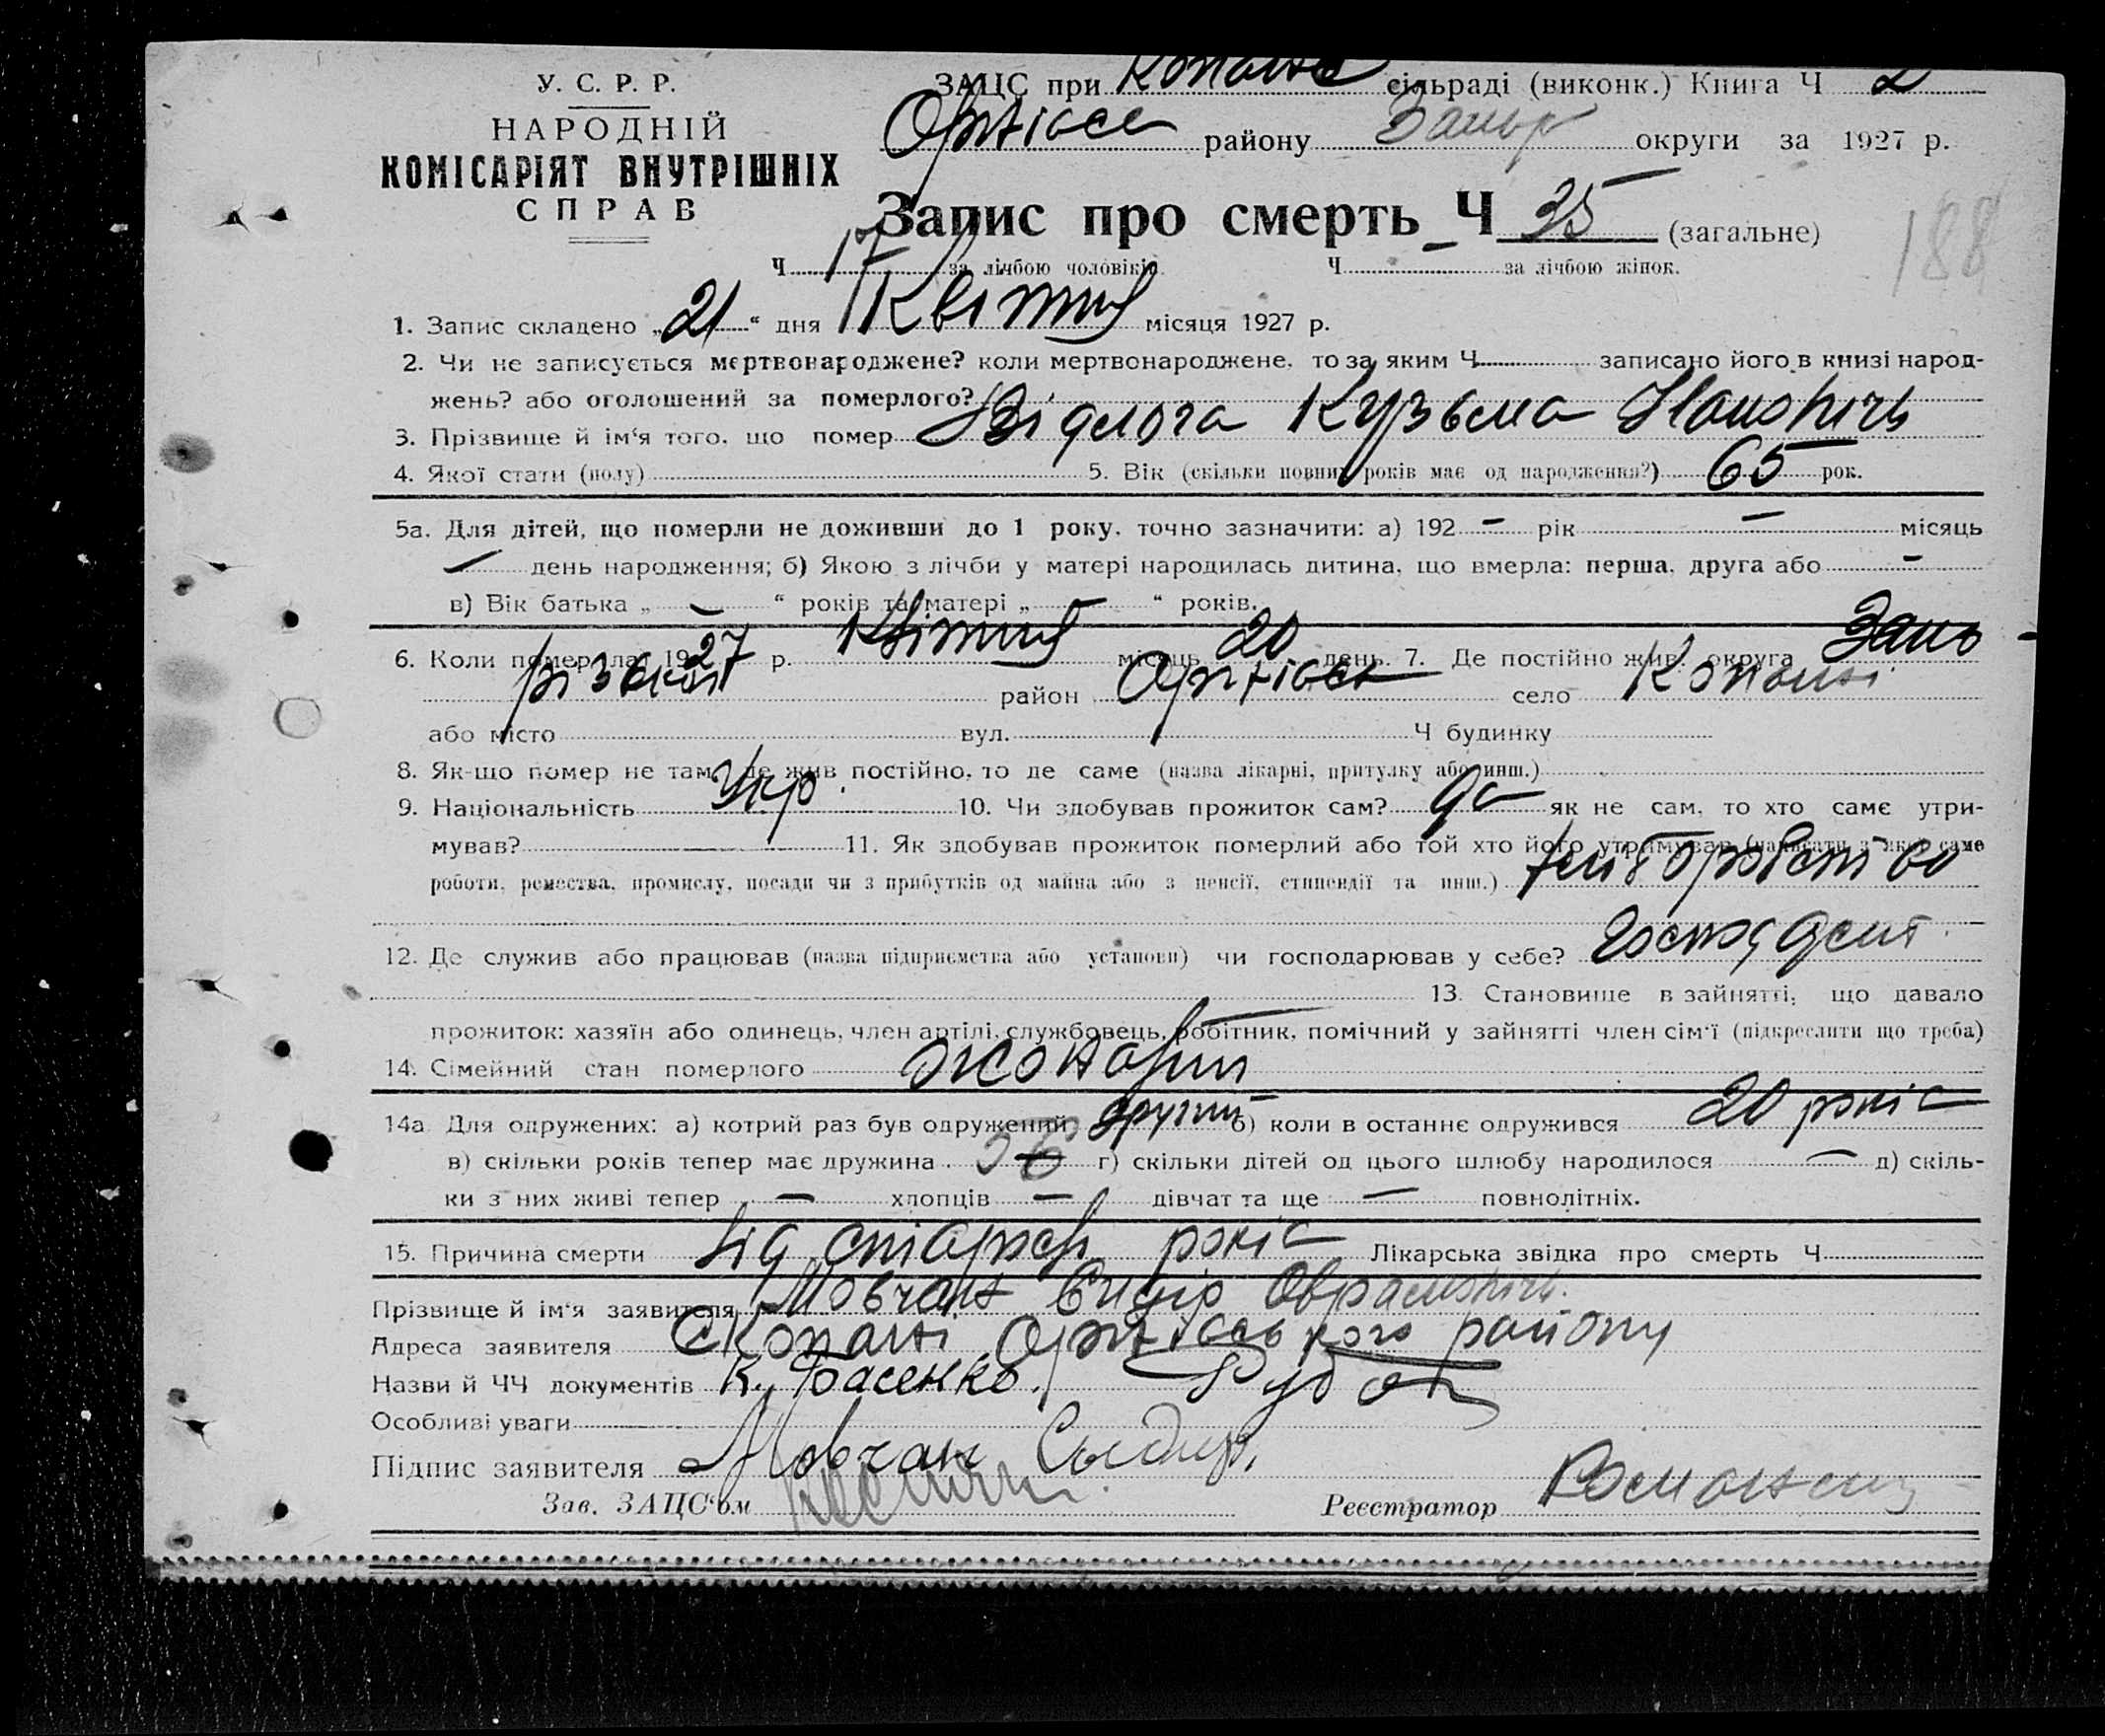 У. С. Р. Р.
НАРОДНІЙ
КОМІСАРІЯТ ВНУТРІШНІХ
СПРАВ
ЗАЦС при Копанів сільраді (виконк.) Книга Ч 2
Оріхівсь району Запор округи за 1927 р.
Запис про смерть Ч 35 (загальне)
188
Ч 17 за лічбою чоловіків. Ч - за лічбою жінок.
1. Запис складено „21“ дня Квітня місяця 1927 р.
2. Чи не записується мертвонароджене? коли мертвонароджене, то за яким Ч записано його в книзі народ-
жень? або оголошений за померлого?
3. Прізвище й ім'я того, що помер Кузьма
4. Якої стати (полу) 5. Вік (скільки повних років має од народження?) 65 рок.
5а. Для дітей, що померли не доживши до 1 року, точно зазначити: а) 192 - рік - місяць
- день народження; б) Якою з лічби у матері народилась дитина, що вмерла: перша, друга або -
в) Вік батька „ - “ років та матері „ - “ років.
6. Коли помер(ла) 1927 р. Квітня місяць 20 день. 7. Де постійно жив: округа Запо-
різької район Оріхівськ село Копани
або місто вул. Ч будинку
8. Як-що помер не там, де жив постійно, то де саме (назва лікарні, притулку або инш.)
9. Національність Укр. 10. Чи здобував прожиток сам? да як не сам, то хто саме утри-
мував? 11. Як здобував прожиток померлий або той хто його утримував (написати з якої саме
роботи, ремества, промислу, посади чи з прибутків од майна або з пенсії, стипендії та инш.) хліборобство
12. Де служив або працював (назва підприємства або установи) чи господарював у себе?
13. Становище в зайнятті, що давало
прожиток: хазяїн або одинець, член артілі, службовець, робітник, помічний у зайнятті член сім'ї (підкреслити що треба)
14. Сімейний стан померлого жонатий
14а. Для одружених: а) котрий раз був одружений другий б) коли в останнє одружився 20 років
в) скільки років тепер має дружина г) скільки дітей од цього шлюбу народилося - д) скіль-
ки з них живі тепер - хлопців - дівчат та ще - повнолітніх.
15. Причина смерти від старості років Лікарська звідка про смерть Ч
Прізвище й ім'я заявителя Мовчан Сидір Оврамович.
Адреса заявителя с Копані Оріхівського району
Назви й ЧЧ документів
Особливі уваги
Підпис заявителя Мовчан
Зав. ЗАЦС'ом Реєстратор